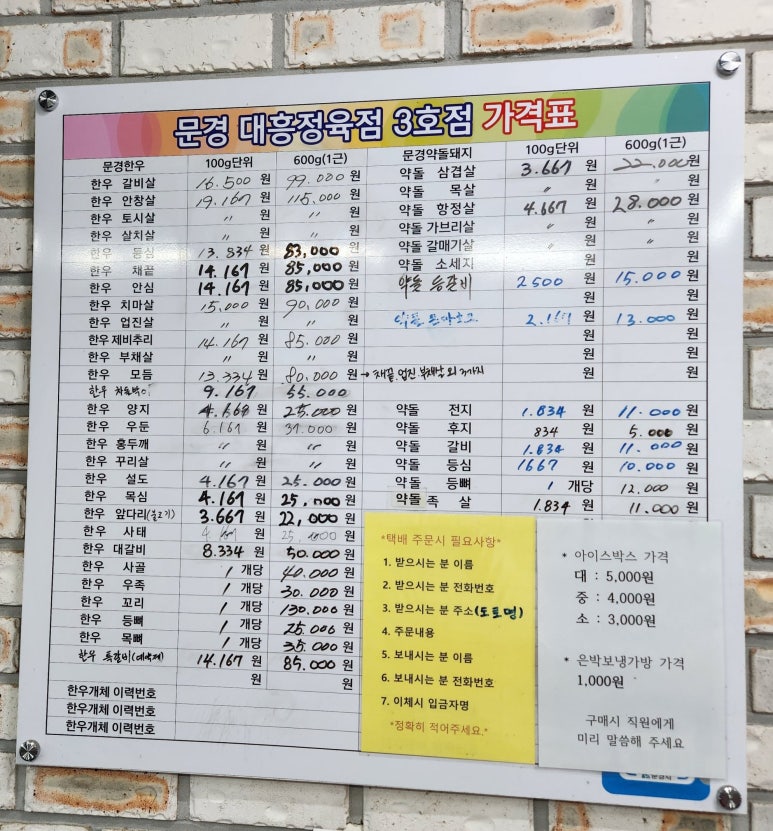 문경 대흥정육점 3호점 가격표
문경한우 100g단위 600g(1근)
한우 갈비살 16.500 원 99.000 원
한우 안창살 19.167 원 115.000 원
한우 토시살 〃 원 〃 원
한우 살치살 〃 원 〃 원
한우 등심 13.834 원 83,000 원
한우 채끝 14.167 원 85,000 원
한우 안심 14.167 원 85,000 원
한우 치마살 15,000 원 90,000 원
한우 업진살 〃 원 〃 원
한우 제비추리 14.167 원 85.000 원
한우 부채살 〃 원 〃 원
한우 모듬 13.334 원 80.000 원 → 채끝 업진 부채살 외 3가지
한우 9.167 55.000
한우 양지 원 25,000 원
한우 우둔 6.167 원 37.000 원
한우 홍두깨 〃 원 〃 원
한우 꾸리살 〃 원 〃 원
한우 설도 4.167 원 25.000 원
한우 목심 4.167 원 25,000 원
한우 앞다리(불고기) 3.667 원 22,000 원
한우 사태 원 원
한우 대갈비 8.334 원 50.000 원
한우 사골 1 개당 40.000 원
한우 우족 1 개당 30.000 원
한우 꼬리 1 개당 130.000 원
한우 등뼈 1 개당 25.000 원
한우 목뼈 1 개당 35.000 원
한우 14.167 원 85.000 원
원 원
한우개체 이력번호
한우개체 이력번호
한우개체 이력번호
문경약돌돼지 100g단위 600g(1근)
약돌 삼겹살 3.667 원 22.000 원
약돌 목살 〃 원 〃 원
약돌 항정살 4.667 원 28.000 원
약돌 가브리살 〃 원 〃 원
약돌 갈매기살 〃 원 〃 원
약돌 소세지 원 원
약돌 등갈비 2500 원 15.000 원
약돌 원 13.000 원
원 원
원 원
약돌 전지 1.834 원 11.000 원
약돌 후지 834 원 5.000 원
약돌 갈비 1.834 원 11.000 원
약돌 등심 1667 원 10.000 원
약돌 등뼈 1 개당 12.000 원
약돌 족 살 1.834 원 11.000 원
*택배 주문시 필요사항*
1. 받으시는 분 이름
2. 받으시는 분 전화번호
3. 받으시는 분 주소(도로명)
4. 주문내용
5. 보내시는 분 이름
6. 보내시는 분 전화번호
7. 이체시 입금자명
*정확히 적어주세요.*
* 아이스박스 가격
대 : 5,000원
중 : 4,000원
소 : 3,000원
* 은박보냉가방 가격
1,000원
구매시 직원에게
미리 말씀해 주세요